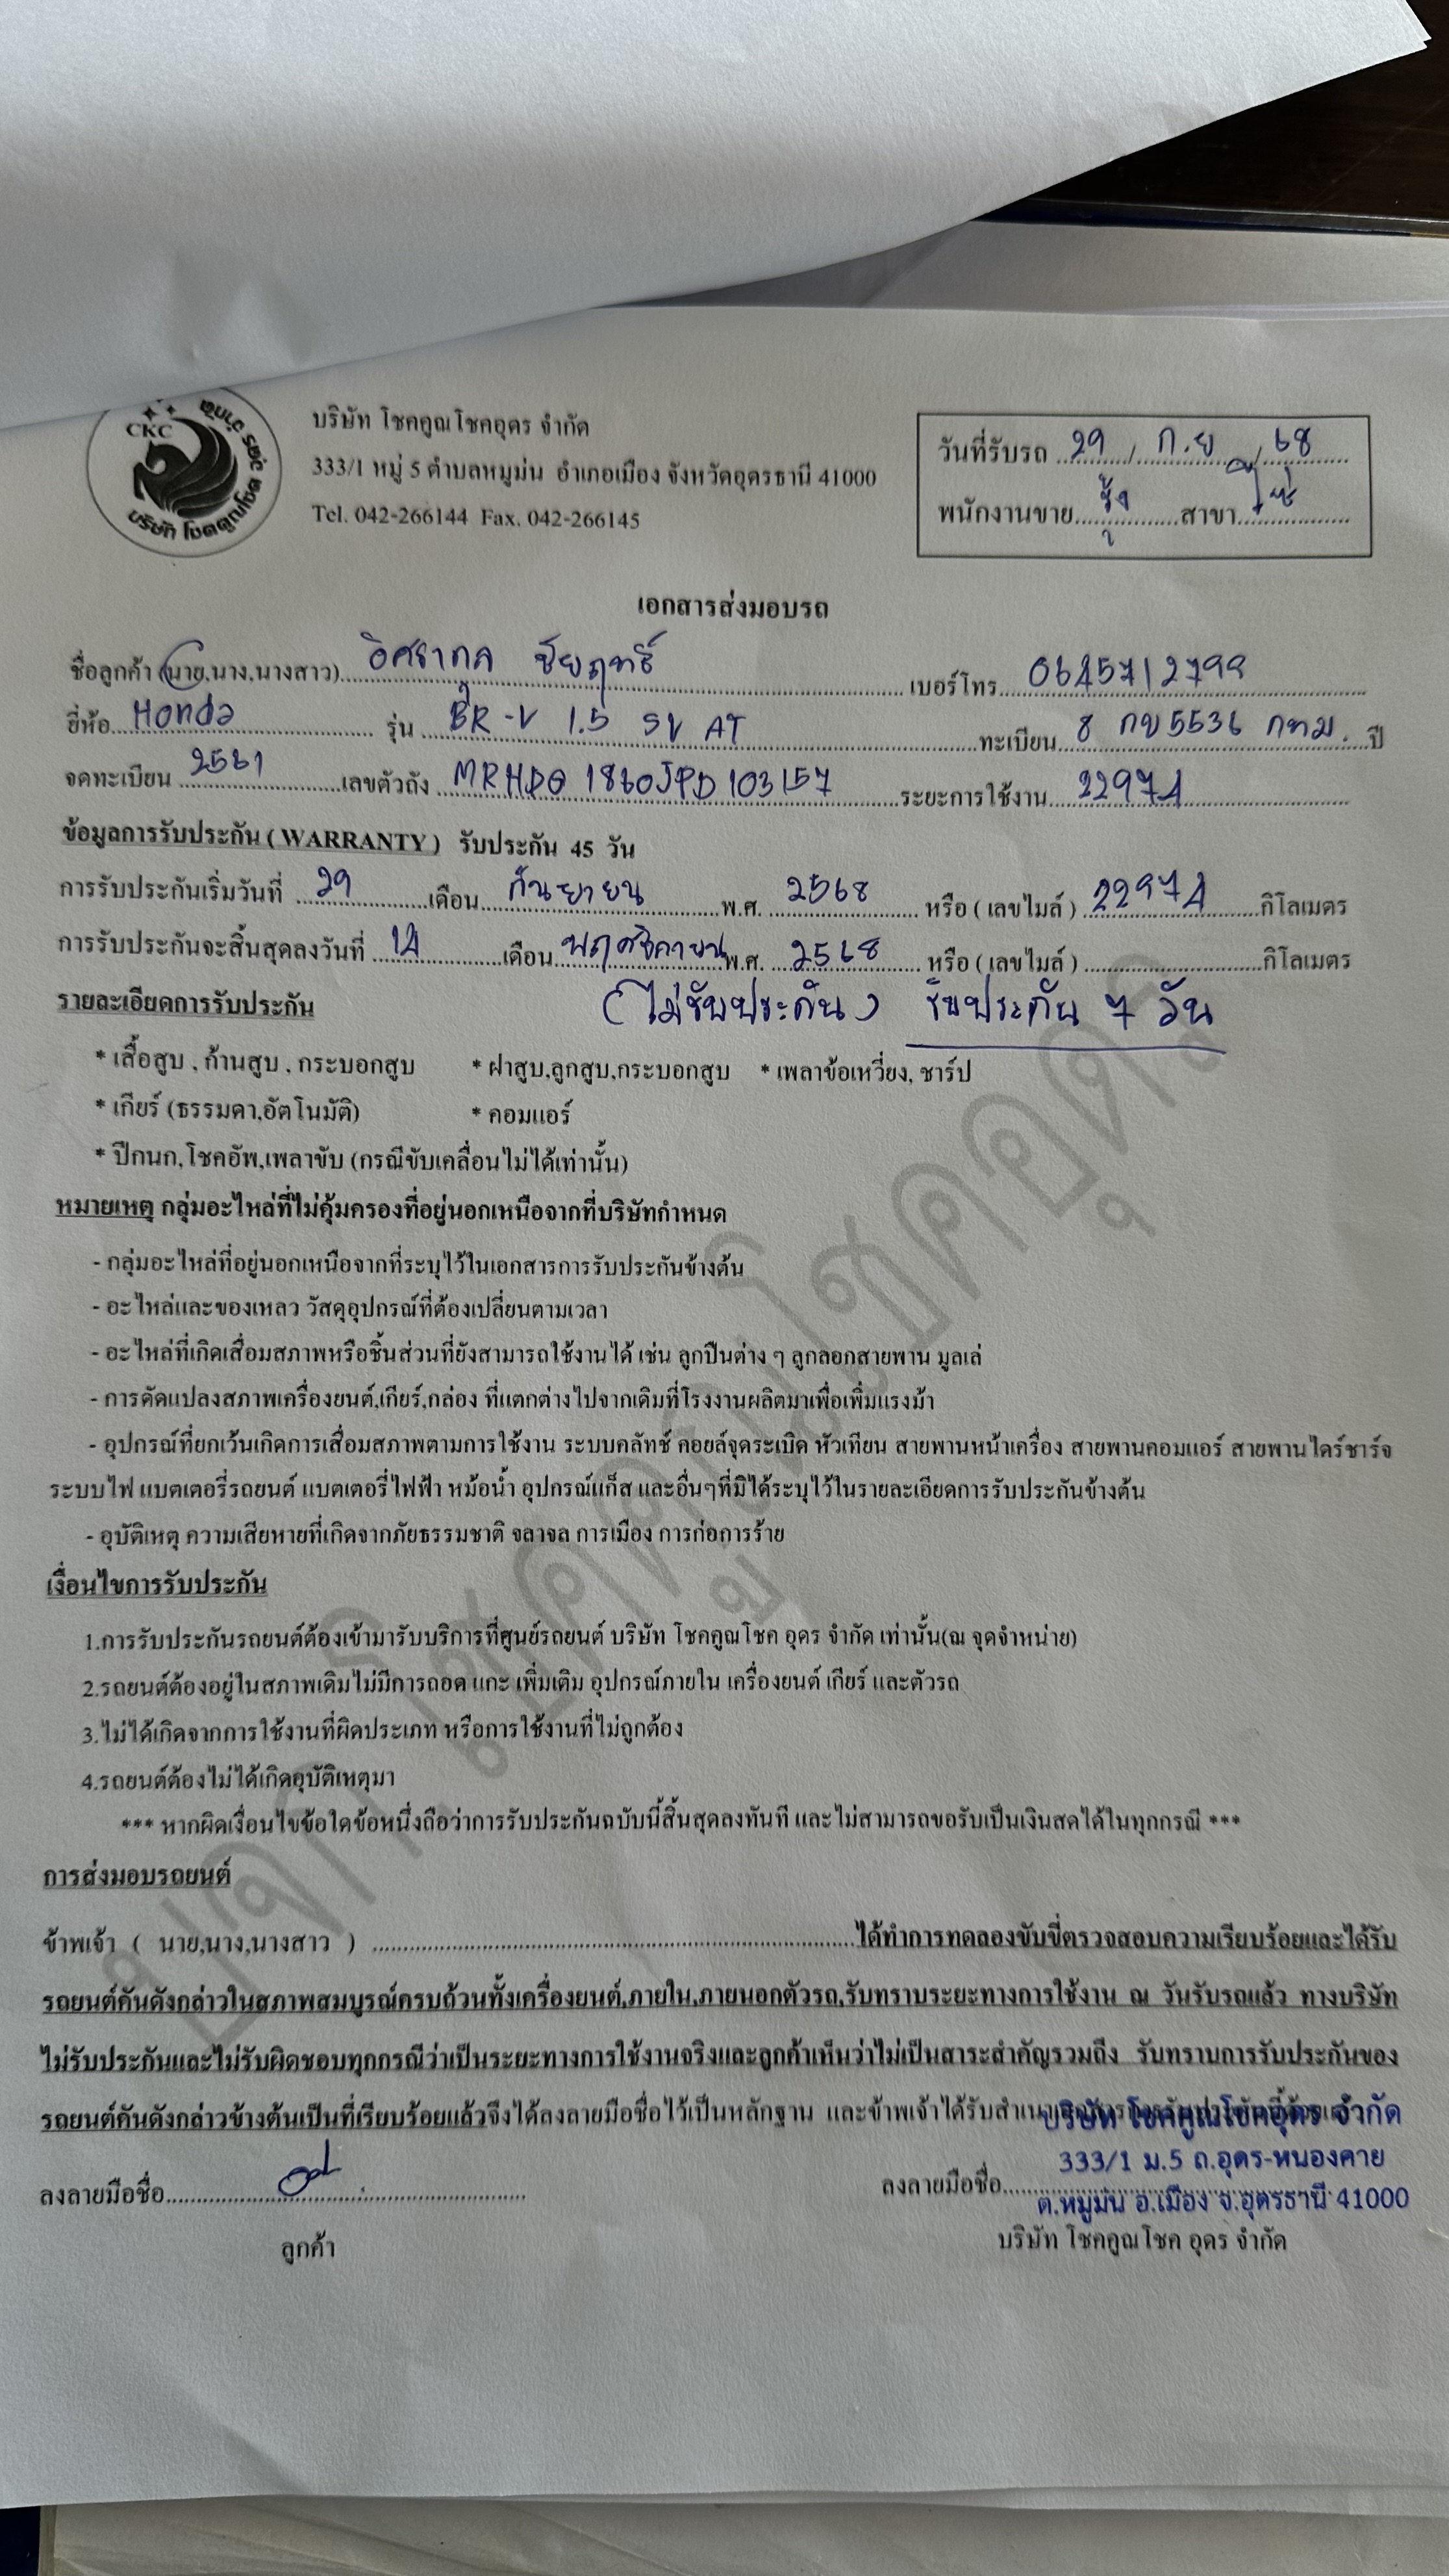 CKC
บริษัท โชคคูณโชค อุดร จำกัด
บริษัท โชคคูณโชคอุดร จำกัด
333/1 หมู่ 5 ตำบลหมูม่น อำเภอเมือง จังหวัดอุดรธานี 41000
Tel. 042-266144 Fax. 042-266145
วันที่รับรถ 29 / ก.ย / 68
พนักงานขาย รุ้ง สาขา
เอกสารส่งมอบรถ
ชื่อลูกค้า (นาย,นาง,นางสาว) อิศรากุล ชัยฤทธิ์ เบอร์โทร 0645712799
ยี่ห้อ Honda รุ่น BR-V 1.5 SV AT ทะเบียน 8 กข 5536 กทม. ปี
จดทะเบียน 2561 เลขตัวถัง MRHDG1860JPD103157 ระยะการใช้งาน 22974
ข้อมูลการรับประกัน ( WARRANTY ) รับประกัน 45 วัน
การรับประกันเริ่มวันที่ 29 เดือน กันยายน พ.ศ. 2568 หรือ ( เลขไมล์ ) 22974 กิโลเมตร
การรับประกันจะสิ้นสุดลงวันที่ 14 เดือน พฤศจิกายน พ.ศ. 2568 หรือ ( เลขไมล์ ) กิโลเมตร
รายละเอียดการรับประกัน (ไม่รับประกัน) รับประกัน 7 วัน
* เสื้อสูบ , ก้านสูบ , กระบอกสูบ * ฝาสูบ,ลูกสูบ,กระบอกสูบ * เพลาข้อเหวี่ยง, ชาร์ป
* เกียร์ (ธรรมดา,อัตโนมัติ) * คอมแอร์
* ปีกนก,โชคอัพ,เพลาขับ (กรณีขับเคลื่อนไม่ได้เท่านั้น)
หมายเหตุ กลุ่มอะไหล่ที่ไม่คุ้มครองที่อยู่นอกเหนือจากที่บริษัทกำหนด
- กลุ่มอะไหล่ที่อยู่นอกเหนือจากที่ระบุไว้ในเอกสารการรับประกันข้างต้น
- อะไหล่และของเหลว วัสดุอุปกรณ์ที่ต้องเปลี่ยนตามเวลา
- อะไหล่ที่เกิดเสื่อมสภาพหรือชิ้นส่วนที่ยังสามารถใช้งานได้ เช่น ลูกปืนต่าง ๆ ลูกลอกสายพาน มูลเล่
- การดัดแปลงสภาพเครื่องยนต์,เกียร์,กล่อง ที่แตกต่างไปจากเดิมที่โรงงานผลิตมาเพื่อเพิ่มแรงม้า
- อุปกรณ์ที่ยกเว้นเกิดการเสื่อมสภาพตามการใช้งาน ระบบคลัทช์ คอยล์จุดระเบิด หัวเทียน สายพานหน้าเครื่อง สายพานคอมแอร์ สายพานไดร์ชาร์จ
ระบบไฟ แบตเตอรี่รถยนต์ แบตเตอรี่ไฟฟ้า หม้อน้ำ อุปกรณ์แก็ส และอื่นๆที่มิได้ระบุไว้ในรายละเอียดการรับประกันข้างต้น
- อุบัติเหตุ ความเสียหายที่เกิดจากภัยธรรมชาติ จลาจล การเมือง การก่อการร้าย
เงื่อนไขการรับประกัน
1.การรับประกันรถยนต์ต้องเข้ามารับบริการที่ศูนย์รถยนต์ บริษัท โชคคูณโชค อุดร จำกัด เท่านั้น(ณ จุดจำหน่าย)
2.รถยนต์ต้องอยู่ในสภาพเดิมไม่มีการถอด แกะ เพิ่มเติม อุปกรณ์ภายใน เครื่องยนต์ เกียร์ และตัวรถ
3.ไม่ได้เกิดจากการใช้งานที่ผิดประเภท หรือการใช้งานที่ไม่ถูกต้อง
4.รถยนต์ต้องไม่ได้เกิดอุบัติเหตุมา
*** หากผิดเงื่อนไขข้อใดข้อหนึ่งถือว่าการรับประกันฉบับนี้สิ้นสุดลงทันที และไม่สามารถขอรับเป็นเงินสดได้ในทุกกรณี ***
การส่งมอบรถยนต์
ข้าพเจ้า ( นาย,นาง,นางสาว ) ได้ทำการทดลองขับขี่ตรวจสอบความเรียบร้อยและได้รับ
รถยนต์คันดังกล่าวในสภาพสมบูรณ์ครบถ้วนทั้งเครื่องยนต์,ภายใน,ภายนอกตัวรถ,รับทราบระยะทางการใช้งาน ณ วันรับรถแล้ว ทางบริษัท
ไม่รับประกันและไม่รับผิดชอบทุกกรณีว่าเป็นระยะทางการใช้งานจริงและลูกค้าเห็นว่าไม่เป็นสาระสำคัญรวมถึง รับทราบการรับประกันของ
รถยนต์คันดังกล่าวข้างต้นเป็นที่เรียบร้อยแล้วจึงได้ลงลายมือชื่อไว้เป็นหลักฐาน และข้าพเจ้าได้รับสำเนา
บริษัท โชคคูณโชคอุดร จำกัด
333/1 ม.5 ถ.อุดร-หนองคาย
ต.หมูม่น อ.เมือง จ.อุดรธานี 41000
ลงลายมือชื่อ ลงลายมือชื่อ
ลูกค้า บริษัท โชคคูณโชค อุดร จำกัด
บจก. โชคคูณโชคอุดร